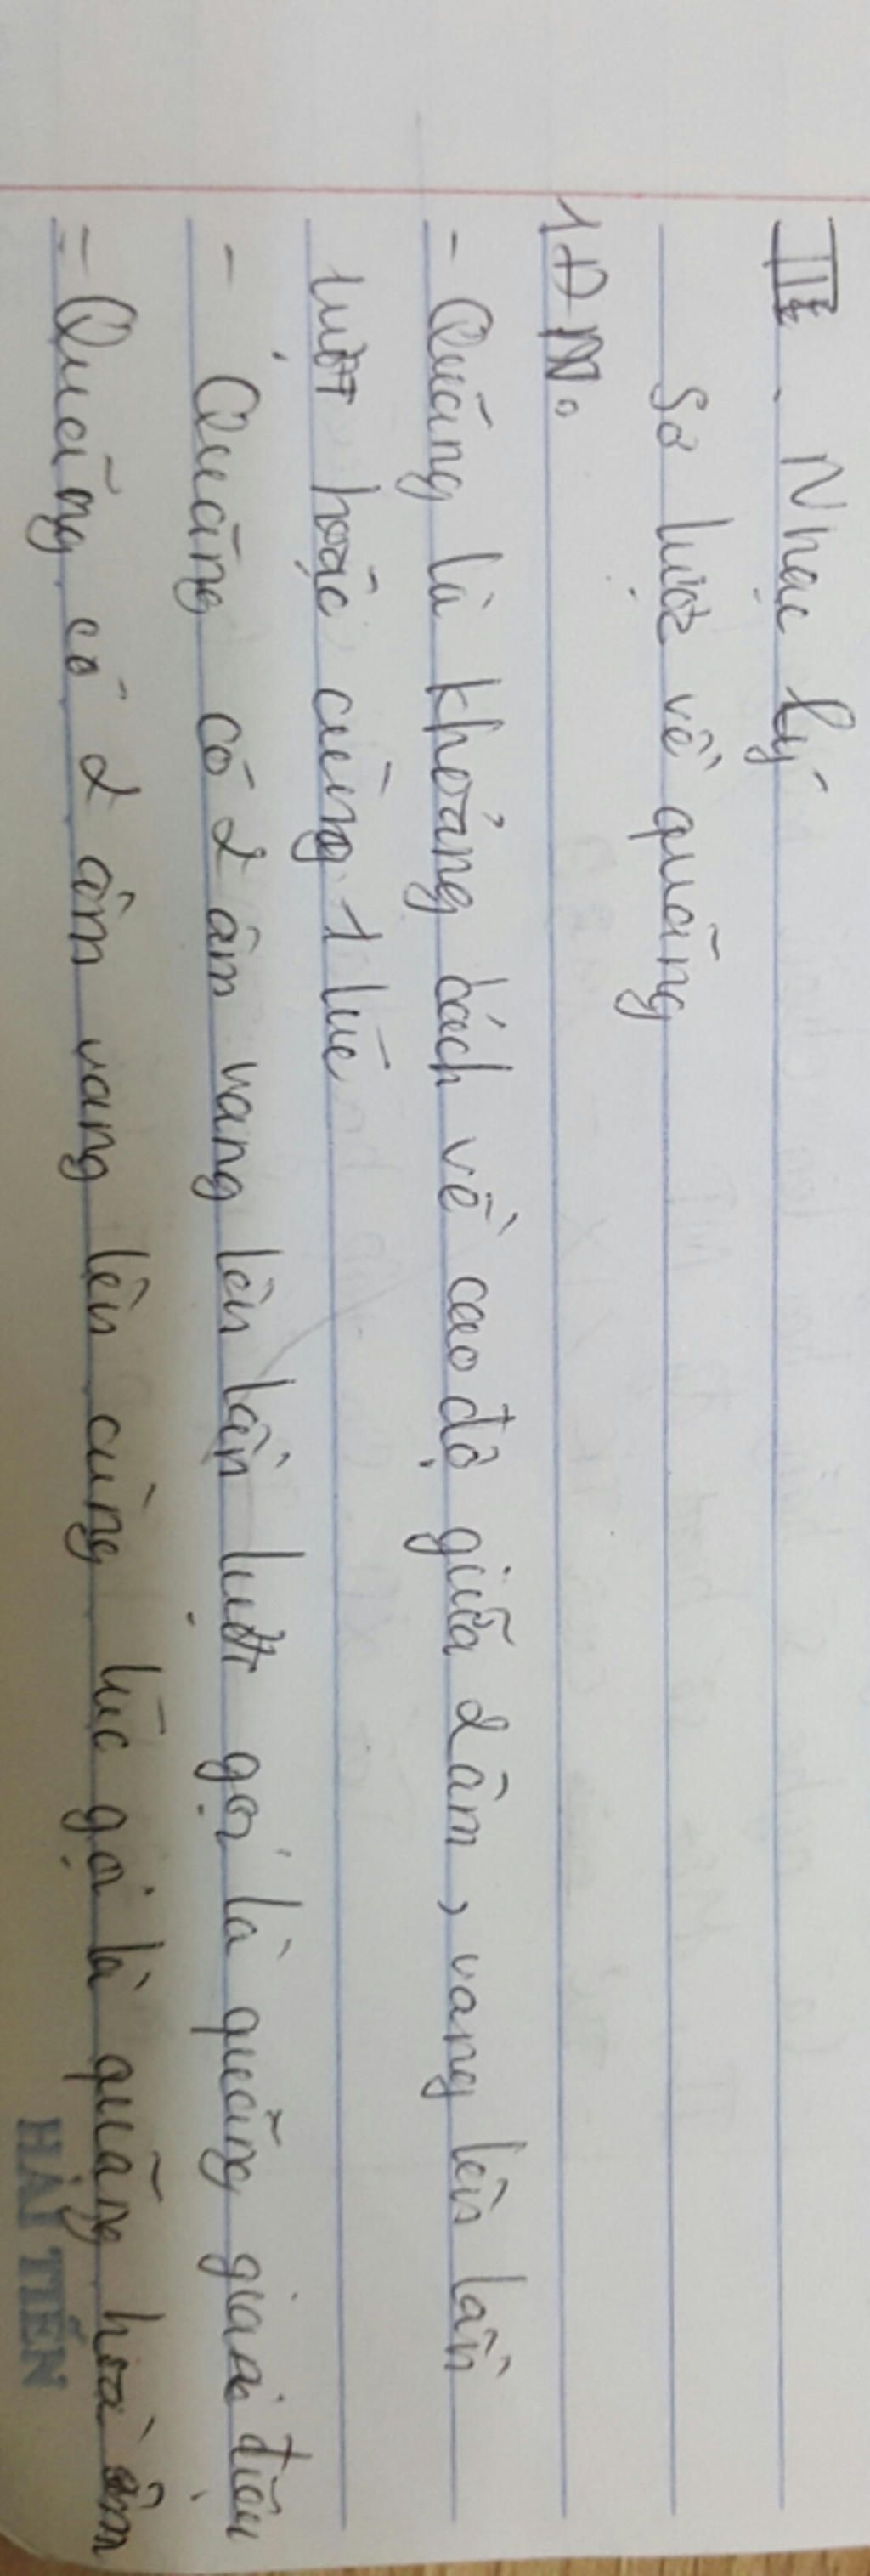 III. Nhạc lý
Sơ lược về quãng
1 ĐN:
- Quãng là khoảng cách về cao độ giữa 2 âm, vang lên lần
lượt hoặc cùng 1 lúc
- Quãng có 2 âm vang lên lần lượt gọi là quãng giai điệu
- Quãng có 2 âm vang lên cùng lúc gọi là quãng hoà âm
HẢI TIẾN